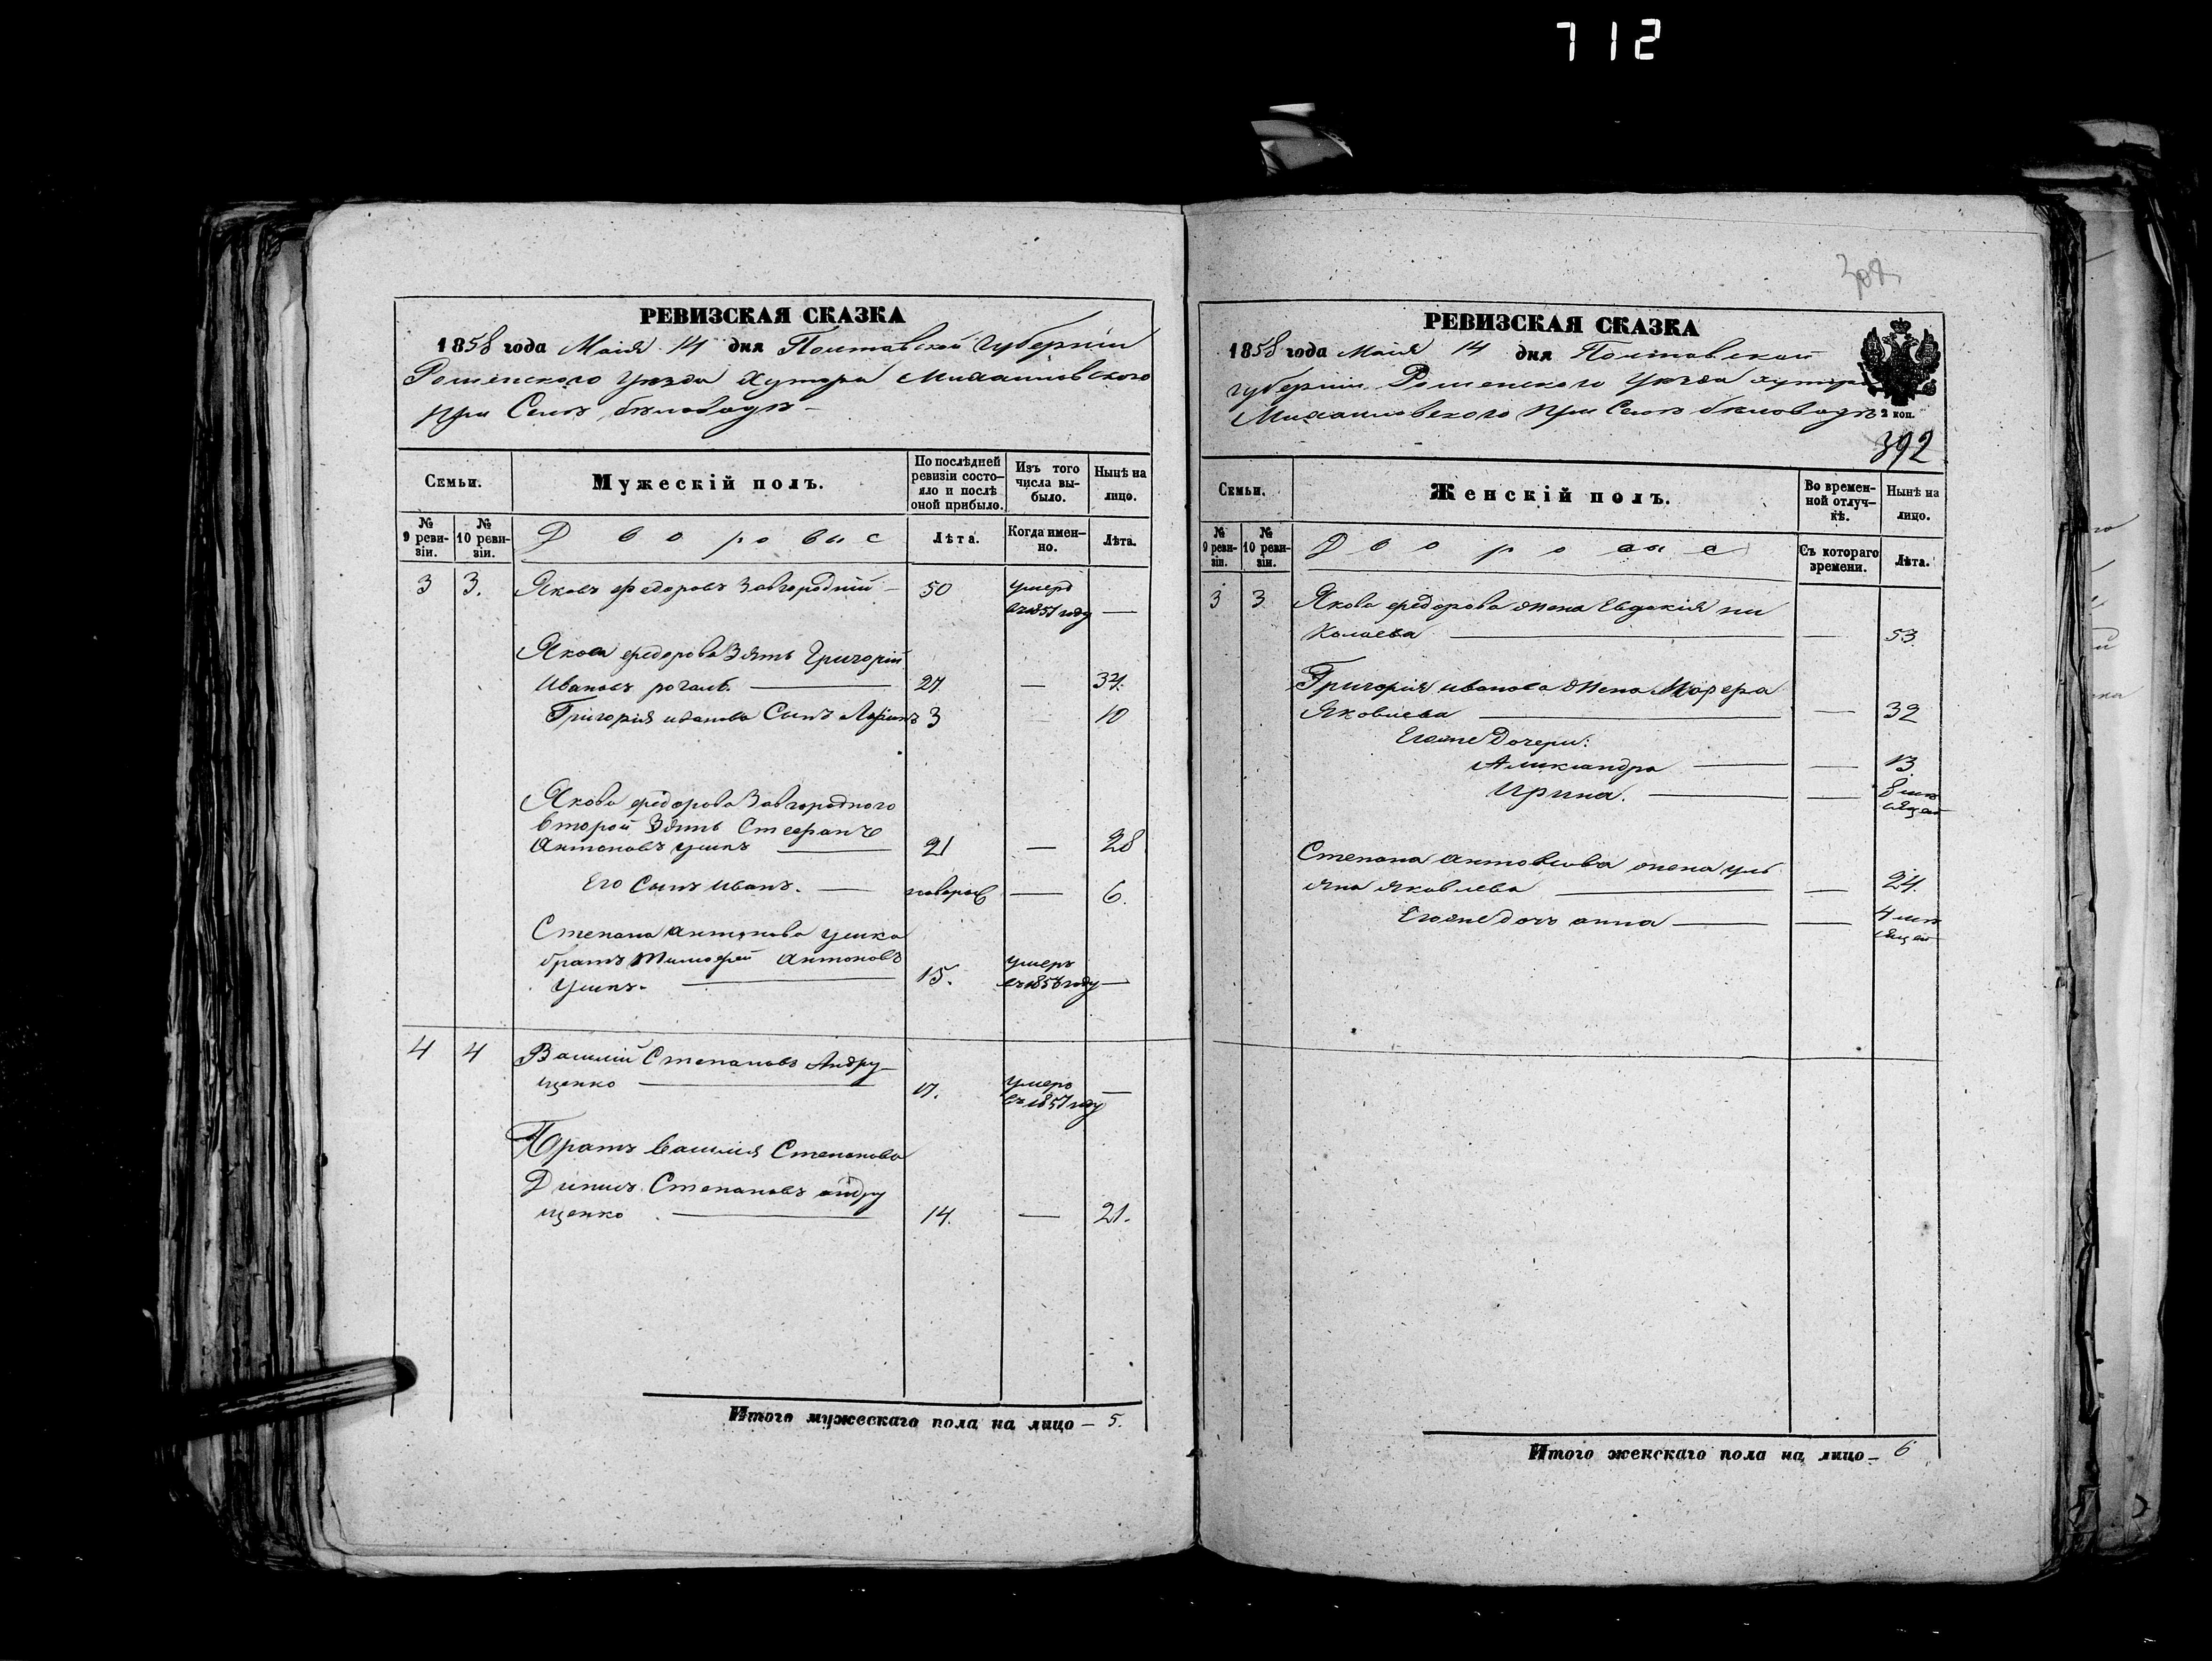 712
РЕВИЗСКАЯ СКАЗКА
1858 года Маія 14 дня Полтавской Губерніи
Роменского уезда Хутора Михаиловского
при Селѣ Бѣловодѣ
Семьи.
Мужескій полъ.
По послѣдней ревизіи состояло и послѣ оной прибыло.
Изъ того числа выбыло.
Нынѣ на лицо.
№ 9 ревизіи.
№ 10 ревизіи.
Дворовые
Лѣта.
Когда именно.
Лѣта.
3 3. Яковъ Федоровъ Завгородній 50 умеръ
въ 1851 году —
Якова Федорова Зять Григорій
Ивановъ 27. — 34.
Григорія иванова Сынъ 3 10
Якова Федорова Завгородного
второй Зять Степанъ
Антоновъ 21 — 28
Его Сынъ иванъ. — 6.
Степана антонова
братъ Тимофей антоновъ
15. умеръ
въ 1856 году —
4 4 Василій Степановъ Андру
щенко 17. умеръ
въ 1857 году —
Братъ василия Степанова
Степановъ андру
щенко 14. — 21.
Итого мужескаго пола на лицо — 5.
308
РЕВИЗСКАЯ СКАЗКА
1858 года Маія 14 дня Полтавской
губерніи Роменского уезда хутора
Михаиловского при Селѣ бѣловодѣ
2 коп.
392
Семьи.
Женскій полъ.
Во временной отлучкѣ.
Нынѣ на лицо.
№ 9 ревизіи.
№ 10 ревизіи.
Дворовые
Съ котораго времени.
Лѣта.
3 3 Якова федорова жена Евдокия ни
колаева — 53.
Григория иванова жена
Яковлева — 32
Егоже Дочери:
Александра — 13
Ирина. — 8 мѣ
сяцей
Степана антонова жена уль
яна яковлева — 24.
Егоже дочь анна — 4 мѣ
сяцей
Итого женскаго пола на лицо — 6